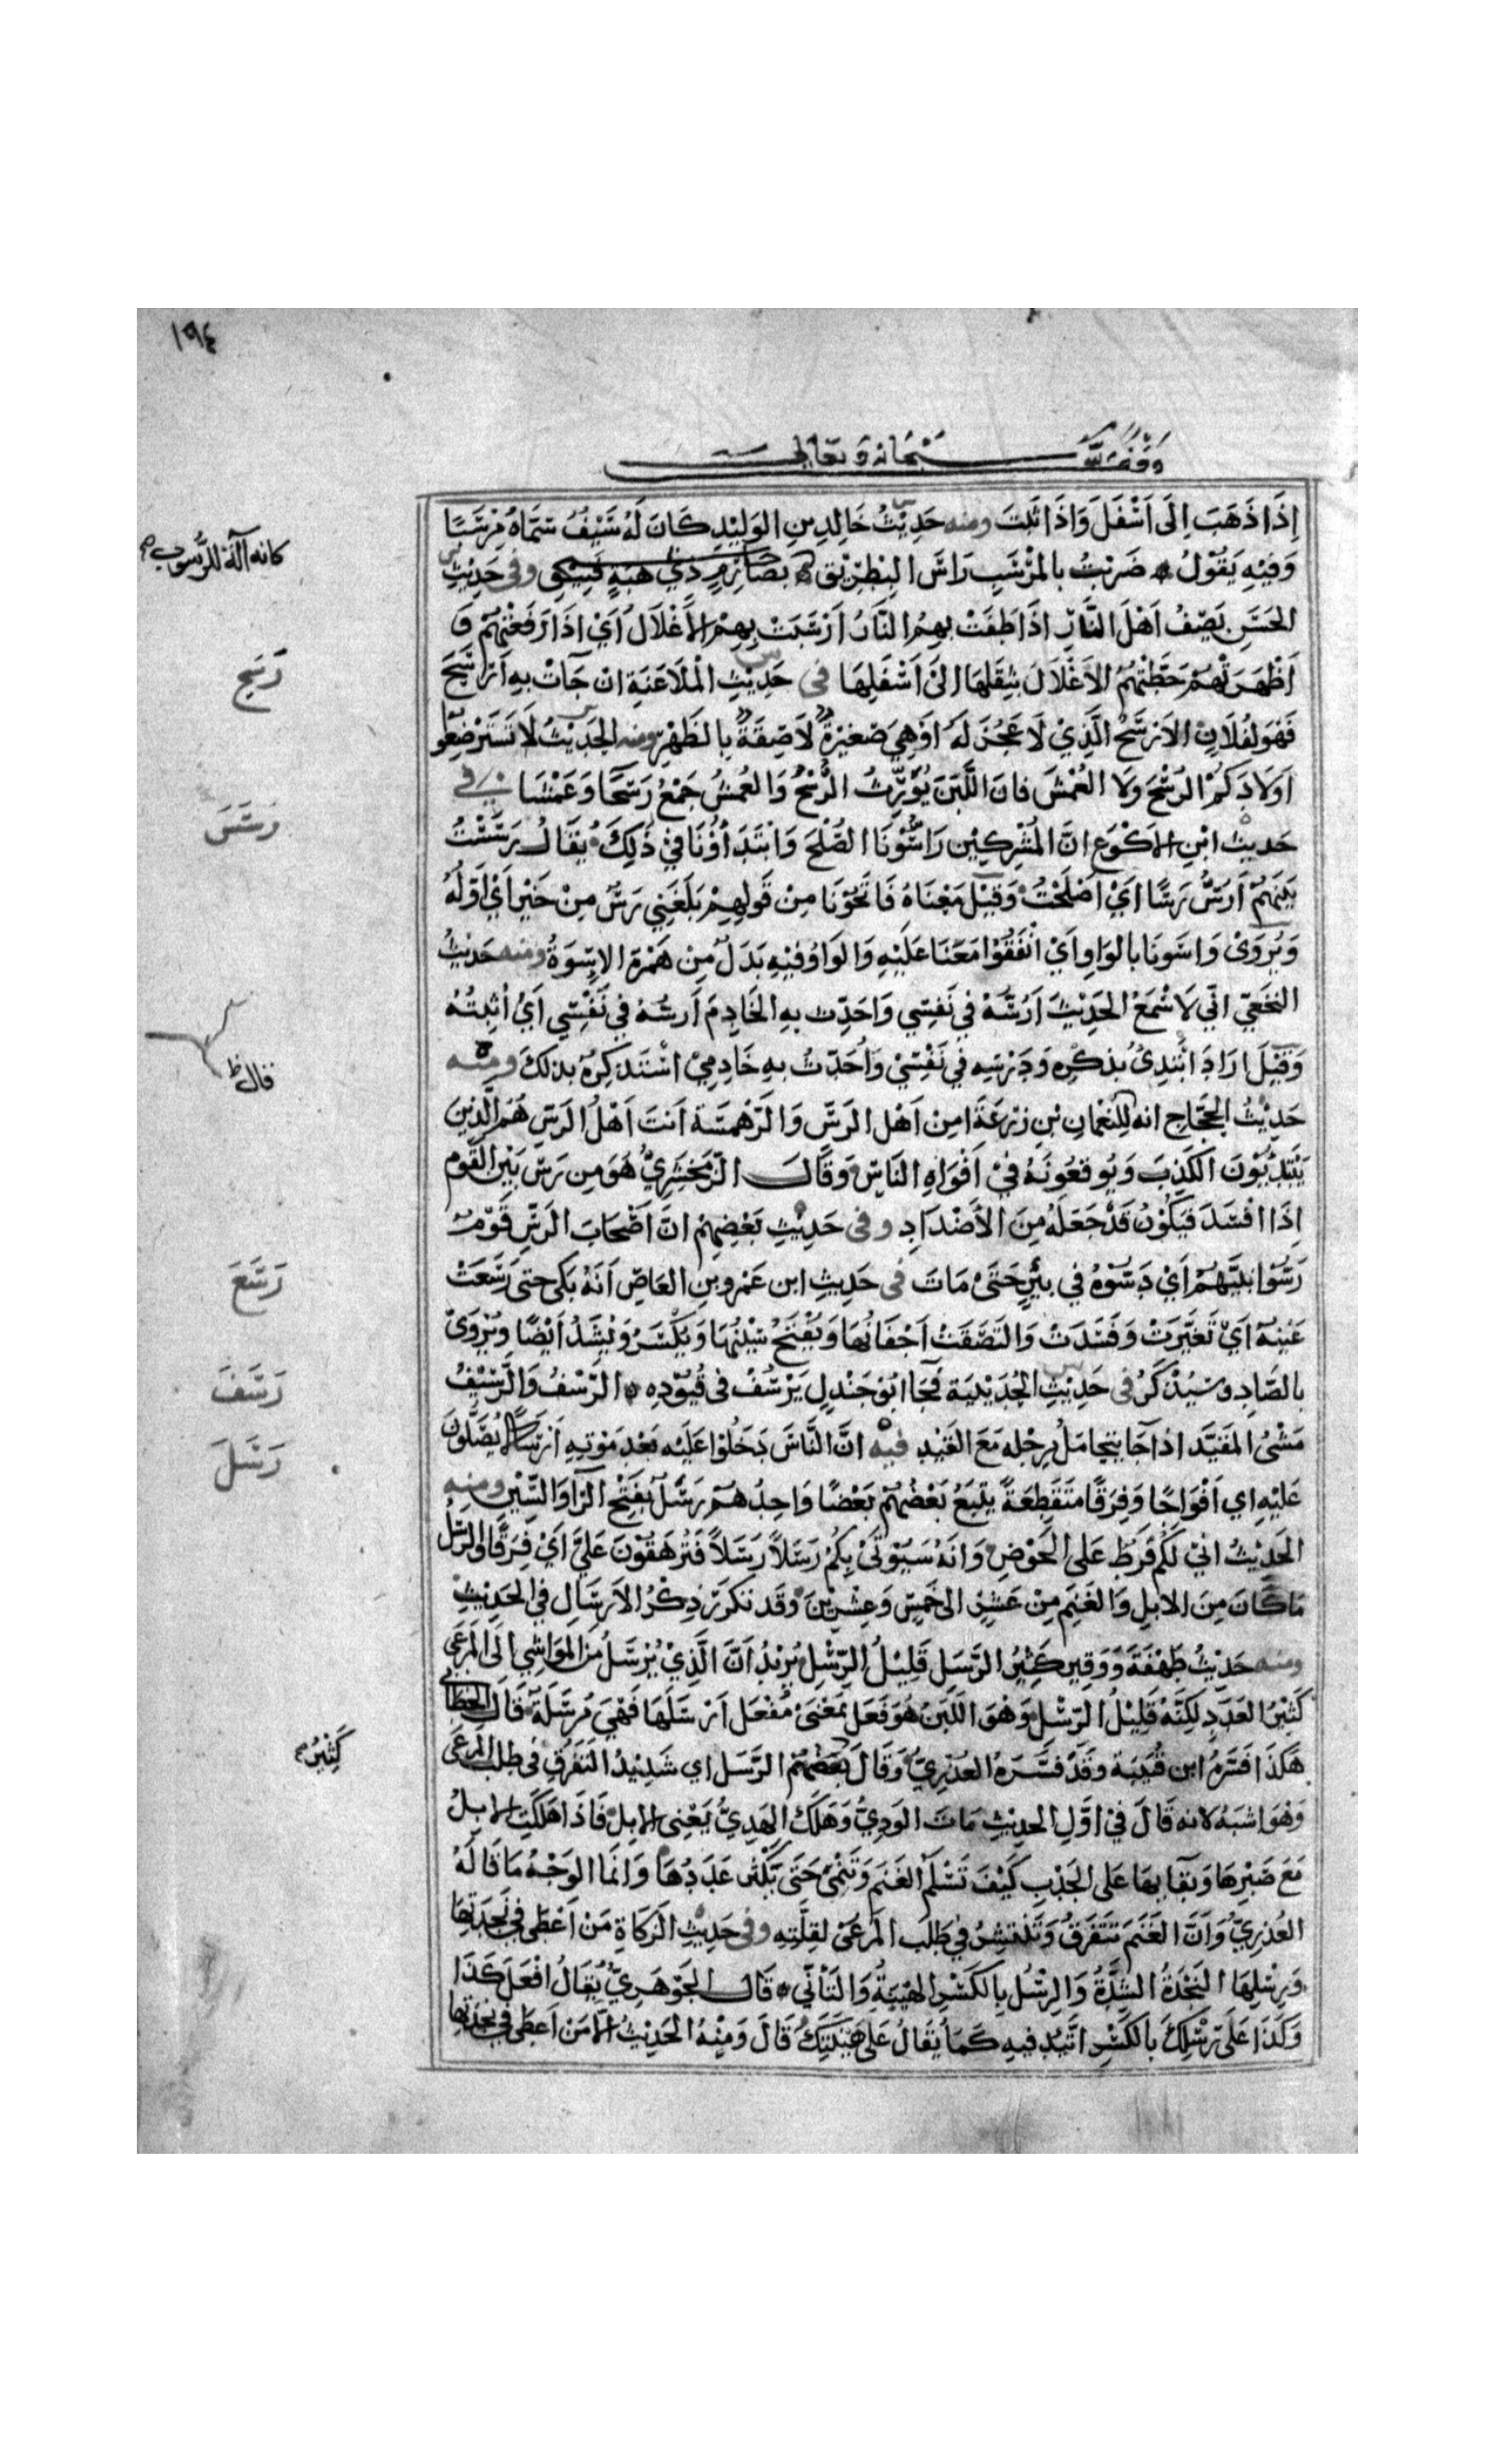 ١٩٤
وقف لله سبحانه وتعالى
إِذَا ذَهَبَ اِلَى اَسْفَلَ وَاِذَا ثَبَتَ ومنه حَدِيْثُ خَالِدِ بنِ الوَلِيْدِ كَانَ لَهُ سَيْفٌ سَمَّاهُ مِرْسَبًا
كانه آلة للرسوب صح
وَفِيْهِ يَقُوْلُ ضَرَبْتُ بالمِرْسَبِ رَاسَ البِطْرِيْقِ بصَارِمٍ ذِي هَبَةٍ فَتِيْقِ وفي حَدِيْثِ
الحَسَنِ يَصِفُ اَهْلَ النَّارِ اِذَا طَفَتْ بِهِمُ النَّارُ اَرْسَبَتْ بِهِمُ الأَغْلَالُ اَيْ اِذَا رَفَعَتْهُمْ وَ
رَسَحَ
اَظْهَرَتْهُمْ حَطَّتْهُمُ الاَغْلَالُ بثِقَلِهَا اِلَى اَسْفَلِهَا في حَدِيْثِ الْمُلَاعَنَةِ اِنْ جَآتْ بِهِ اَرْسَحَ
فَهُوَ لِفُلَانٍ الاَرْسَحُ الَّذِيْ لَا عَجُزَ لَهُ اَوْ هِيَ صَغِيْرَةٌ لَاصِقَةٌ بِالظَهْرِ ومنه الحَدِيْثُ لَا تَسْتَرْضِعُوا
اَوْلَادَكُمُ الرُسْحَ وَلَا العُمْشَ فَانَ اللَّبَنَ يُوَرِّثُ الرُسْحَ وَالعُمشُ جَمْعُ رَسْحَا وَعَمْشَا في
رَسَسَ
حَدِيث ابْنِ الاَكْوَعِ انَّ المُشْرِكِيْنَ رَاسُّوْنَا الصُّلْحَ وَابْتَدَاُوْنَا فِيْ ذَلِكَ يُقَالُ رَسَسْتُ
بَيْنَهُمْ اَرُسُّ رَسًّا اَيْ اَصْلَحْتُ وَقِيْلَ مَعْنَاهُ فَاتَحُوْنَا مِنْ قَوْلِهِمْ بَلَغَنِي رَسٌّ مِنْ خَبَرٍ اَيْ اَوَّلُهُ
وَيُرْوَى وَاسَوْنَا بالوَاوِ اَيْ اتَّفَقُوْا مَعَنَا عَلَيْهِ وَالوَاوُ فِيْهِ بَدَلٌ مِنْ هَمْزَةِ الاِسْوَةُ ومنه حَدِيْثُ
النخَعِيِّ اِنّي لَاَسْمَعُ الحَدِيْثَ اَرُسُّهُ فِي نَفْسِي وَاُحَدِّثُ بِهِ الخَادِمَ اَرسُّهُ فِي نَفْسِي اَيْ اُثْبِتُهُ
وَقِيْلَ اَرَادَ اَبْتَدِئُ بذِكْرِهِ وَدَرْسِهِ فِي نَفْسِيْ وَاُحَدِّثُ بِهِ خَادِمِيْ اَسْتَذْكِرُهُ بذلكَ ومنه
قال ظ
حَدِيْثُ الحَجَّاجِ انه لِلنُعْمَانِ بْنِ زُرْعَةَ اَمِنْ اَهْلِ الرَسِّ وَالرَّهْمَسَةِ اَنتَ اَهْلُ الرَسِّ هُمُ الَّذِينَ
يَبْتَدِئُوْنَ الكَذِبَ وَيُوقِعُونَهُ فِيْ اَفْوَاهِ النَاسِ وَقَالَ الزَمَخْشَرِيُّ هُوَ مِن رَسَّ بَيْنَ القَوْمِ
اِذَا افْسَدَ فَيَكُوْنُ قَدْ جَعَلَهُ مِنَ الأَضْدَادِ وفي حَدِيْثِ بَعْضِهِمْ انَّ اَصْحَابَ الرَسِّ قَوْمٌ
رَسَعَ
رَسُّوا نبيَّهُمْ اَيْ دَسُّوْهُ فِي بِئْرٍ حَتَّى مَاتَ في حَدِيثِ ابن عَمْرو بنِ العَاصِ اَنَهُ بَكَى حتى رَسَعَتْ
عَيْنُهُ اَيْ تَغَيَّرَتْ وَفَسَدَتْ وَالتَصَقَتْ اَجْفَانُهَا وَيُفْتَحُ سِيْنُهَا وَيُكْسَرُ وَيُشَدُ اَيْضًا وَيُرْوَى
رَسَفَ
بالصَّادِ وسَيُذْكَرُ في حَدِيْثِ الحُدَيْبِيَةِ فَجَا ابُوْ جَنْدلٍ يَرْسُفُ فى قُيُوْدِهِ الرَسْفُ وَالرَسِيْفُ
رَسَلَ
مَشْيُ المُقَيَّدِ اذا جَا يتَحَامَلُ برِجْلِهِ مَعَ القَيْدِ فيه انَّ النَّاسَ دَخَلُوْا عَلَيْهِ بَعْدَ مَوْتِهِ اَرْسَالًا يُصَلُّوْنَ
عَلَيْهِ اي اَفْوَاجًا وَفِرَقًا مُتَقَطِعَةً يتْبَعُ بَعْضُهُمْ بَعْضًا وَاحِدُهُمْ رَسَلٌ بفَتْحِ الرَّا وَالسِّيْنِ ومنه
الحَدِيْثُ اِنيْ لَكُمْ فَرَطٌ عَلَى الحَوْضِ وَانَهُ سَيُوْتَى بِكُمْ رَسَلًا رَسَلًا فَتُرْهَقُوْنَ عَلَيَّ اَيْ فِرَقًا وَالرَسَلُ
مَا كَانَ مِنَ الاِبِلِ وَالغَنَمِ مِنْ عَشْرٍ الى خَمْسٍ وَعِشْرِيْنَ وَقَد تكَرَّرَ ذِكْرُ الاَرْسَالِ في الحَدِيْثِ
ومنه حَدِيْثُ طَهْفَةَ وَوَقِيرٍ كَثِيْرُ الرَّسَلِ قَلِيْلُ الرِسْلِ يُرِيْدُ اَنَّ الَّذِيْ يُرْسَلُ مِنَ المَوَاشِي اِلَى المَرْعَى
كَثِيْرُ العَدَدِ لكِنَّهُ قَلِيْلُ الرِسْلِ وَهُوَ اللَبَنُ هُوَ فَعَلٌ بمَعْنَى مُفْعَلٍ اَرْسَلَهَا فَهْيَ مُرْسَلَةٌ قَالَ الخطابي
كَثِيْرُ صح
هَكَذَا فَسَّرَهُ ابن قُتَيْبَة وقَدْ فَسَّرَهُ العُذْرِيُّ وَقَالَ بَعْضُهُمْ الرَسَل اي شَدِيْدُ التَفَرُّقِ في طَلَبِ المَرعَى
وَهُوَ اَشْبَهُ لانه قَالَ فِيْ اَوَّلِ الحدِيْثِ مَاتَ الوَدِيُّ وَهَلَكَ الهَدِيُّ يَعْنِي الاِبِلَ فَاذَا هَلَكَتِ الاِبِلُ
مَعَ صَبْرِهَا وَبَقَايهَا عَلى الجَدْبِ كَيْفَ تَسْلَمُ الغَنَمُ وَتَنْمَى حَتَّى يَكْثُرَ عَدَدُهَا وَانَّمَا الوَجْهُ مَا قَالَهُ
العُذرِيُّ وَاَنَّ الغَنَمَ تَتَفَرَقُ وَتَنْتَشِرُ فِي طَلَبِ المَرْعَى لقِلَّتِهِ وفي حَدِيْثِ الزَكَاةِ مَنْ اَعْطَى فِي نَجْدَتِهَا
وَرِسْلِهَا النَجْدَةُ الشِدَّةُ وَالرِسْلُ بالكَسْرِ الهِيْنَةُ وَالتَأَنِّي قَالَ الجَوْهَرِيُّ يُقَالُ افْعَلْ كَذَا
وَكَذَا عَلَى رِسْلِكَ بالكَسْرِ اتَّئِدْ فيهِ كَمَا يُقَالُ عَلَى هِيْنَتِكَ قَالَ وَمِنْهُ الحَدِيْثُ اِلَّا مَن اَعطَى في نَجْدَتِهَا